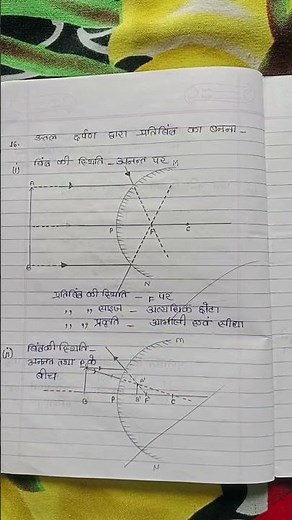 16. उत्तल दर्पण द्वारा प्रतिबिंब का बनना -
(i) बिंब की स्थिति - अनन्त पर
M
A
P
F
C
B
N
प्रतिबिंब की स्थिति - F पर
,, ,, साइज - अत्यधिक छोटा
,, ,, प्रकृति - आभासी एवं सीधा
(ii) बिंब की स्थिति -
अनन्त तथा P के
बीच
M
A'
B
P
B'
F
C
N